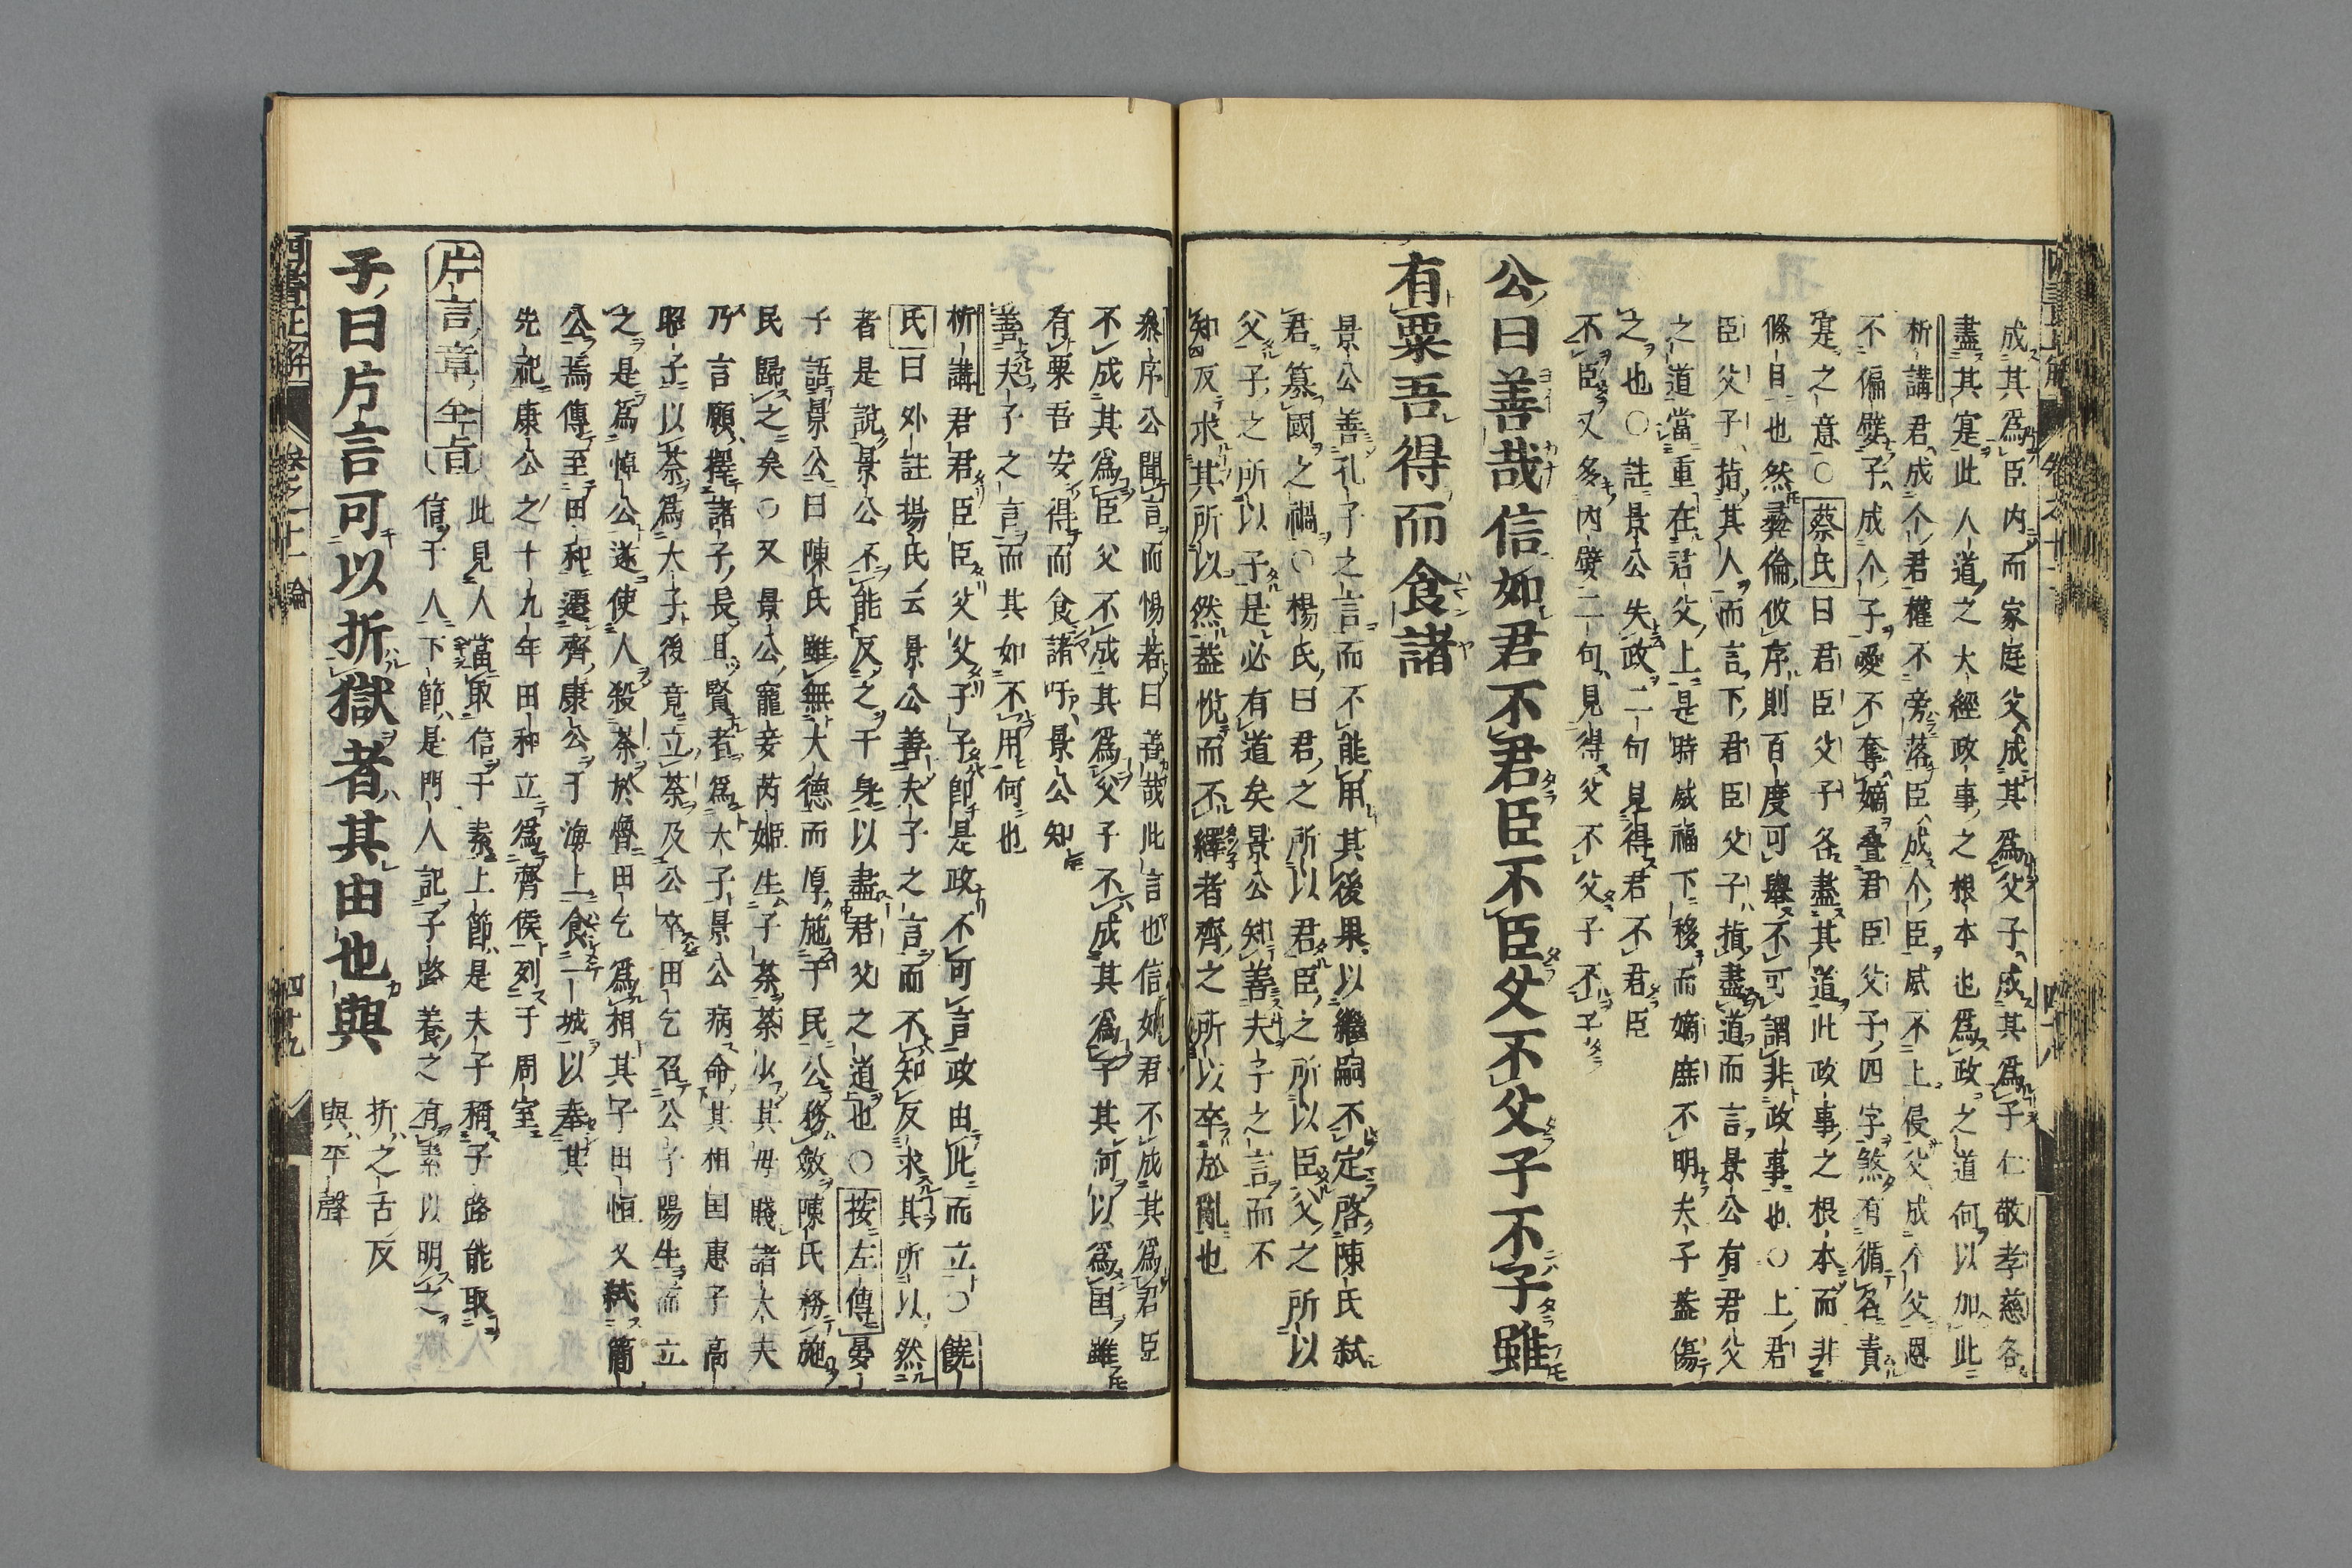 成其爲臣内而家庭父成其爲父子成其爲子仁敬孝慈各
盡其寔此人道之大經政事之根本也爲政之道何以加此
析講君成个君權不旁落臣成个臣威不上侵父成个父恩
不偏嬖子成个子愛不奪嫡叠君臣父子四字煞有循名責
寔之意〇蔡氏曰君臣父子各盡其道此政事之根本而非
條目也然彝倫攸序則百度可舉不可謂非政事也〇上君
臣父子指其人而言下君臣父子指盡道而言景公有君父
之道當重在君父上是時威福下移而嫡庶不明夫子葢傷
之也〇註景公失政二句見得君不君臣
不臣又多内嬖二句見得父不父子不子
公曰善哉信如君不君臣不臣父不父子不子雖
有粟吾得而食諸
景公善孔子之言而不能用其後果以繼嗣不定啓陳氏弑
君簒國之禍〇楊氏曰君之所以君臣之所以臣父之所以
父子之所以子是必有道矣景公知善夫子之言而不
知反求其所以然葢悅而不繹者齊之所以卒於亂也
叅序公聞言而惕若曰善哉此言也信如君不成其爲君臣
不成其爲臣父不成其爲父子不成其爲子其何以爲国雖
有粟吾安得而食諸吁景公知
善夫子之言而其如不用何也
析講君君臣臣父父子子卽是政不可言政由此而立〇饒
氏曰外註揚氏云景公善夫子之言而不知反求其所以然
者是說景公不能反之于身以盡君父之道也〇按左傳晏
子語景公曰陳氏雖無大德而厚施于民公務斂陳氏務施
民歸之矣〇又景公寵妾芮姬生子荼荼少其母賤諸大夫
乃言願擇諸子長且賢者爲大子景公病命其相国惠子高
昭子以荼爲大子後竟立荼及公卒田乞召公子陽生而立
之是爲悼公遂使人殺荼於
公焉傳至田和遷齊康公于海上食一城以奉其
先祀康公之十九年田和立爲齊侯列于周室
片言章全旨
此見人當取信于素上節是夫子稱子路能取
信于人下節是門人記子路養之有素以明之
子曰片言可以折獄者其由也與
折之舌反
與平聲
四書正解
卷之十一論
四十九